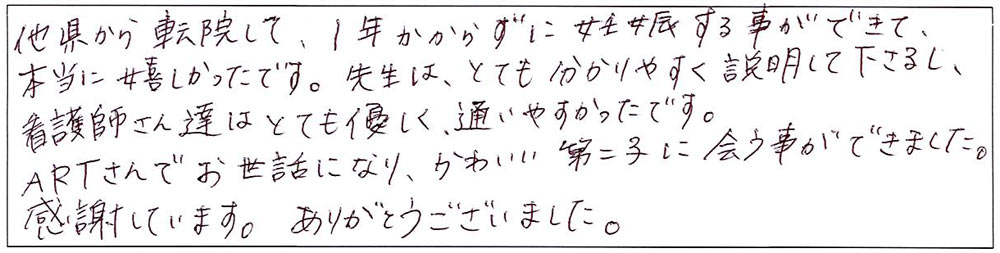 他県から転院して、1年かからずに妊娠する事ができて、
本当に嬉しかったです。先生は、とても分かりやすく説明して下さるし、
看護師さん達はとても優しく、通いやすかったです。
ARTさんでお世話になり、かわいい第二子に会う事ができました。
感謝しています。ありがとうございました。